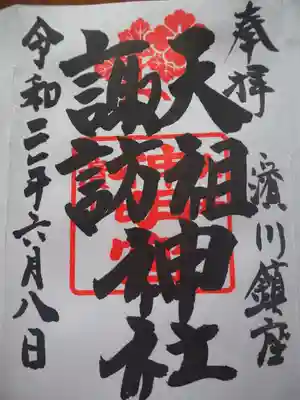 奉拝
濱川鎮座
天祖神社
諏訪神社
令和二年六月八日